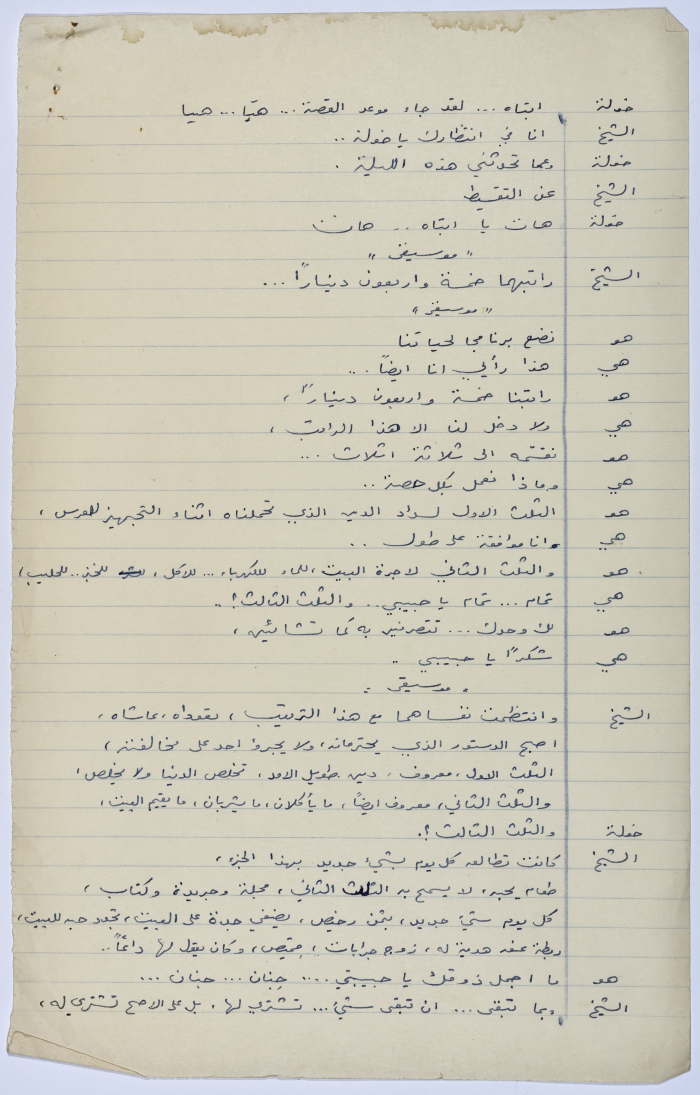 خولة ابتاه ... لقد جاء موعد القصة ... هيّا ... هيا
الشيخ انا في انتظارك يا خولة ..
خولة وعما تحدثني هذه الليلة .
الشيخ عن التقسيط
خولة هات يا ابتاه .. هات
" موسيقى "
الشيخ راتبهما خمسة واربعون ديناراً ...
" موسيقى "
هو نضع برنامجا لحياتنا
هي هذا رأيي انا ايضاً ..
هو راتبنا خمسة واربعون ديناراً ،
هي ولا دخل لنا الا هذا الراتب ،
هو نقسّمه الى ثلاثة اثلاث ...
هي وماذا نعمل بكل حصة ..
هو الثلث الاول لسداد الدين الذي تحملناه اثناء التجهيز للعرس ،
هي وانا موافقة على طول ..
هو والثلث الثاني لاجرة البيت ، للماء للكهرباء ... للأكل ، للخبز .. للحليب ،
هي تمام ... تمام يا حبيبي .. والثلث الثالث ؟! ..
هو لك وحدك ... تتصرفين به كما تشائين ،
هي شكراً يا حبيبي ..
" موسيقى "
الشيخ وانتظمت نفساهما مع هذا الترتيب ، تعوداه ، عاشاه ،
اصبح الدستور الذي يحترمانه ، ولا يجرؤ احد على مخالفته ،
الثلث الاول ، معروف ، دين طويل الامد ، تخلص الدنيا ولا يخلص ،
والثلث الثاني ، معروف ايضاً ، ما يأكلان ، ما يشربان ، ما يقيم البيت ،
خولة والثلث الثالث ؟!.
الشيخ كانت تطالعه كل يوم بشيء جديد بهذا الجزء ،
طعام يحبه ، لا يسمح به الثلث الثاني ، مجلة وجريدة وكتاب ،
كل يوم شيء جديد ، بثمن رخيص ، يضفي جدة على البيت ، تجدد حبه للبيت ،
ربطة عنق هدية له ، زوج جرابات ، قميص ، وكان يقول لها دائماً ..
هو ما اجمل ذوقك يا حبيبتي .... حنان ... حنان ...
الشيخ وبما تبقى ... ان تبقى شيء ... تشتري لها . بل على الاصح تشتري له ،